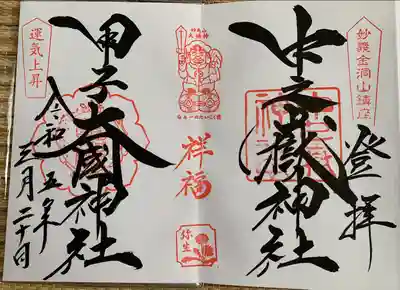 妙義金洞山鎮座
中之嶽神社
登拝
祥福
弥生
運気上昇
甲子大國神社
令和五年
三月二十日